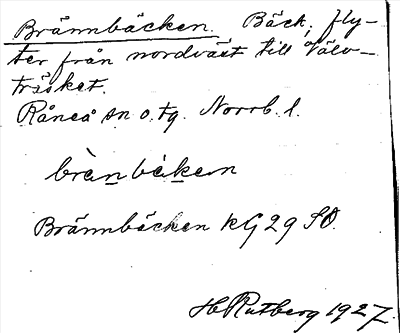 Brännbäcken. Bäck, fly-
ter från nordväst till Välv-
träsket.
Råneå sn o. tg. Norrb. l.
brènbèken
Brännbäcken kG 29 SO.
H Rutberg 1927.